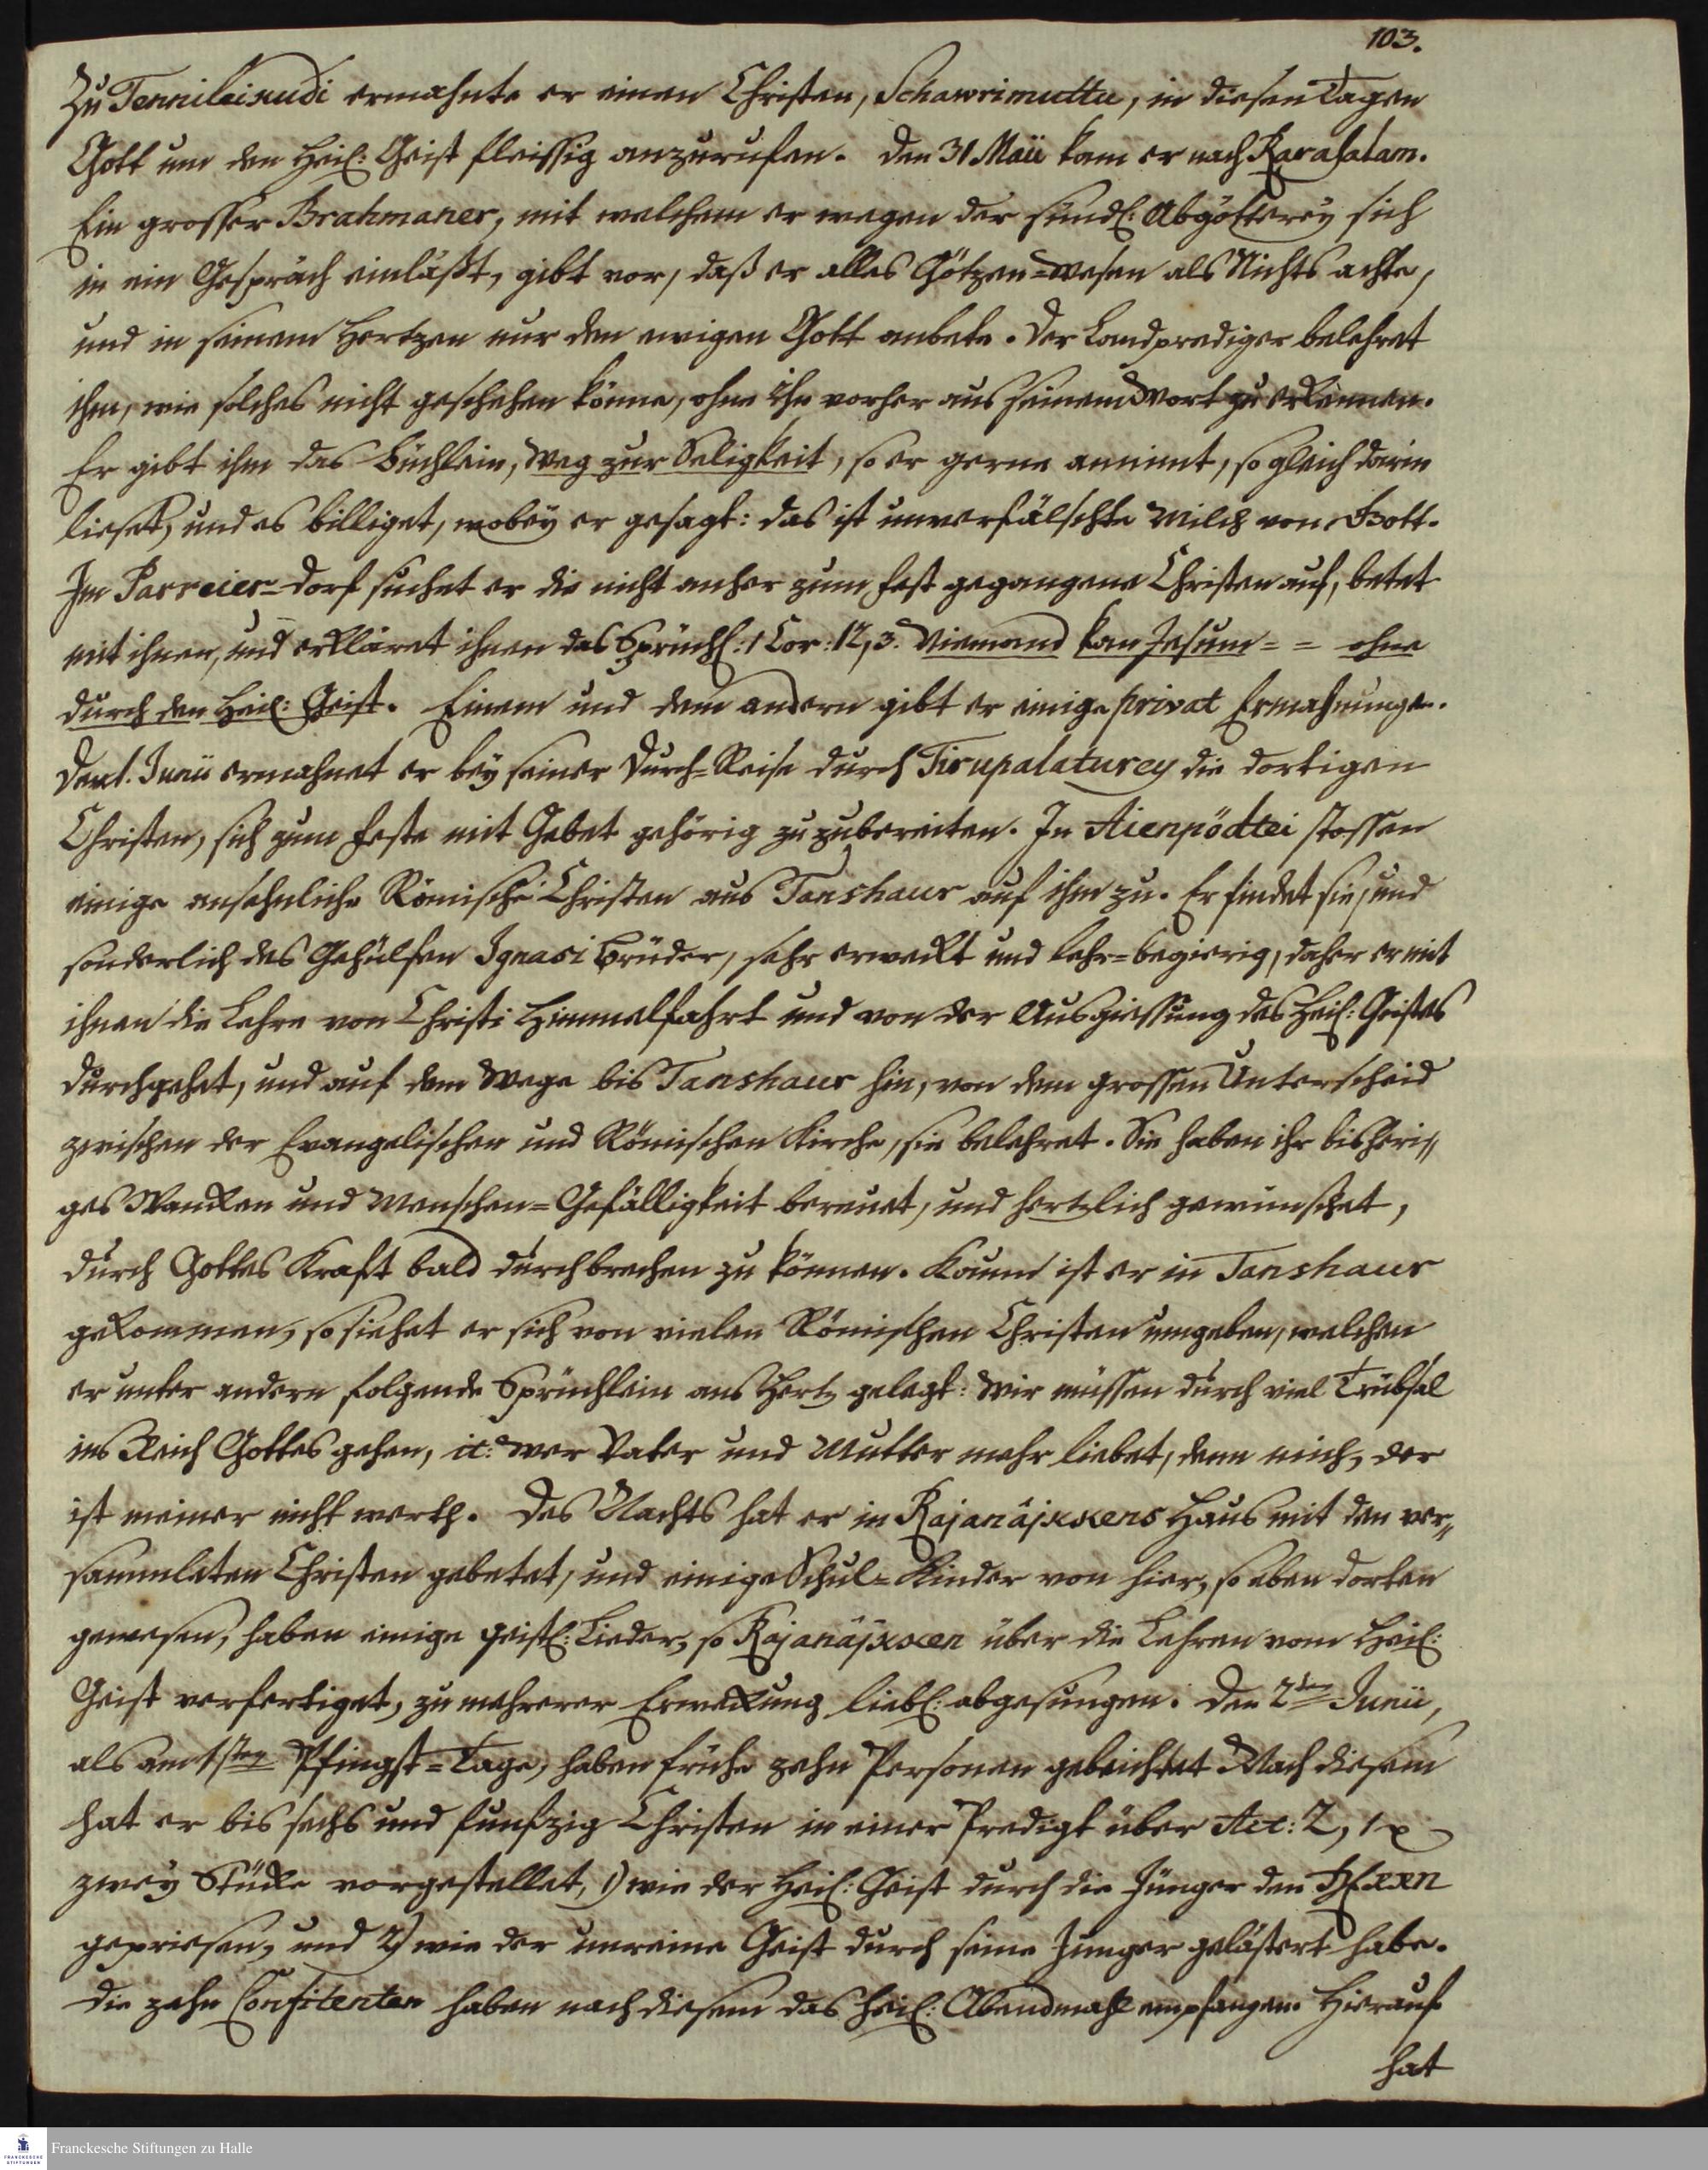 103.
Zu Tennileikudi ermahnte er einen Christen, Schawrimuttu, in diesen Tagen
Gott um den Heil: Geist fleissig anzurufen. Den 31 Maii kam er nach Karasalam.
Ein grosser Brahmaner, mit welchem er wegen der sündl: Abgötterey sich
in ein Gespräch einläßt, gibt vor, daß er alles Götzen=Wesen als Nichts achte,
und in seinem Hertzen nur den ewigen Gott anbete. Der Landprediger belehret
ihn, wie solches nicht geschehen könne, ohne Ihn vorher aus seinem Wort zu erkennen.
Er gibt ihm das Büchlein, Weg zur Seligkeit, so er gerne annimt, so gleich darin
lieset, und es billiget, wobey er gesagt: das ist unverfälschte Milch von Gott.
Im Parreier=Dorf suchet er die nicht anher zum Fest gegangene Christen auf, betet
mit ihnen, und erkläret ihnen das Sprüchl: 1 Cor: 12, 3. Niemand kan Jesum = = ohne
durch den Heil: Geist. Einem und dem andern gibt er einige privat Ermahnungen.
Den 1. Junii ermahnet er bey seiner Durch=Reise durch Tirupalaturey die dortigen
Christen, sich zum Feste mit Gebet gehörig zuzubereiten. In Aienpödtei stossen
einige ansehnliche Römische Christen aus Tanshaur auf ihn zu. Er findet sie, und
sonderlich des Gehülfen Ignasi Brüder, sehr erweckt und lehr=begierig, daher er mit
ihnen die Lehre von Christi Himmelfahrt und von der Ausgiessung des Heil: Geistes
durchgehet, und auf dem Wege bis Tanshaur hin, von dem grossen Unterscheid
zwischen der Evangelischen und Römischen Kirche, sie belehret. Sie haben ihr bisheri=
ges Wancken und Menschen=Gefälligkeit bereuet, und hertzlich gewünschet,
durch Gottes Kraft bald durchbrechen zu können. Kaum ist er in Tanshaur
gekommen, so siehet er sich von vielen Römischen Christen umgeben, welchen
er unter andern folgende Sprüchlein ans Hertz gelegt: Wir müssen durch viel Trübsal
ins Reich Gottes gehen, it: Wer Vater und Mutter mehr liebet, denn mich, der
ist meiner nicht werth. Des Nachts hat er in Rajanâjkkens Haus mit den ver=
sammleten Christen gebetet, und einige Schul=Kinder von hier, so eben dorten
gewesen, haben einige geistl: Lieder, so Rajanâjkken über die Lehren vom Heil:
Geist verfertiget, zu mehrerer Erweckung liebl: abgesungen. Den 2ten Junii,
als am 1sten Pfingst=Tage, haben frühe zehn Personen gebeichtet. Nach diesem
hat er bis sechs und funfzig Christen in einer Predigt über Act: 2, 1
zwey Stücke vorgestellet, 1) wie der Heil: Geist durch die Jünger den HErrn
gepriesen, und 2) wie der unreine Geist durch seine Jünger gelästert habe.
Die zehn Confitenten haben nach diesem das Heil: Abendmahl empfangen. Hierauf
hat
Franckesche Stiftungen zu Halle